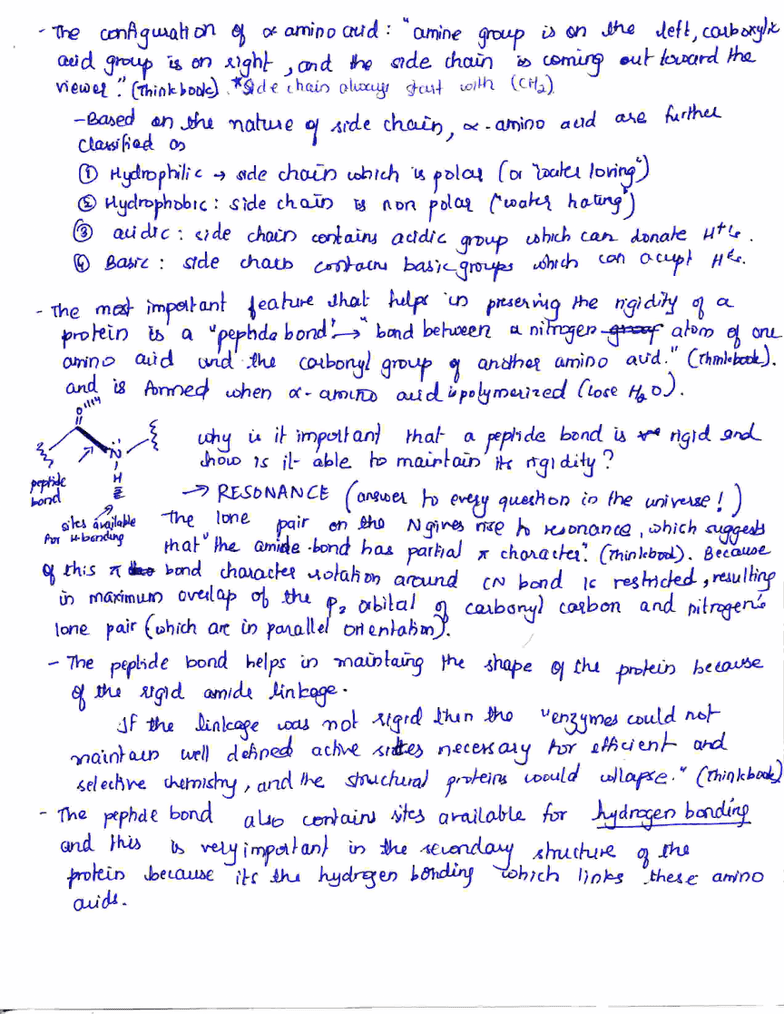 - The configuration of α amino acid : "amine group is on the left, carboxylic
acid group is on right , and the side chain is coming out toward the
viewer." (Thinkbook) *side chain always start with (CH2)
- Based on the nature of side chain, α - amino acid are further
classified as
① Hydrophilic → side chain which is polar (or "water loving")
② Hydrophobic : side chain is non polar ("water hating")
③ acidic : side chain contains acidic group which can donate H+
④ Basic : side chain contains basic groups which can accept H
- The most important feature that helps in preserving the rigidity of a
protein is a "peptide bond" → "bond between a nitrogen group atom of one
amino acid and the carbonyl group of another amino acid." (Thinkbook).
and is formed when α - amino acid is polymerized (lose H2O).
O
N
H
peptide
bond
sites available
for H-bonding
why is it important that a peptide bond is rigid and
how is it able to maintain its rigidity ?
→ RESONANCE (answer to every question in the universe !)
The lone pair on the N gives rise to resonance, which suggests
that "the amide bond has partial π character". (Thinkbook). Because
of this π bond character rotation around CN bond is restricted, resulting
in maximum overlap of the pz orbital of carbonyl carbon and nitrogen's
lone pair (which are in parallel orientation).
- The peptide bond helps in maintaing the shape of the protein because
of the rigid amide linkage.
If the linkage was not rigid then the "enzymes could not
maintain well defined active sites necessary for efficient and
selective chemistry, and the structural proteins would collapse." (Thinkbook)
- The peptide bond also contains sites available for hydrogen bonding
and this is very important in the secondary structure of the
protein because its the hydrogen bonding which links these amino
acids.